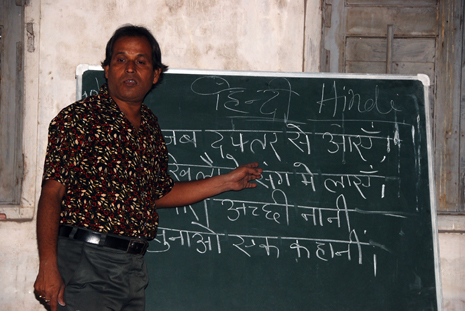 हिन्दी Hindi
जब दफ्तर से आएँ
खिलौने संग मे लाएँ
अच्छी नानी
सुनाओ एक कहानी।